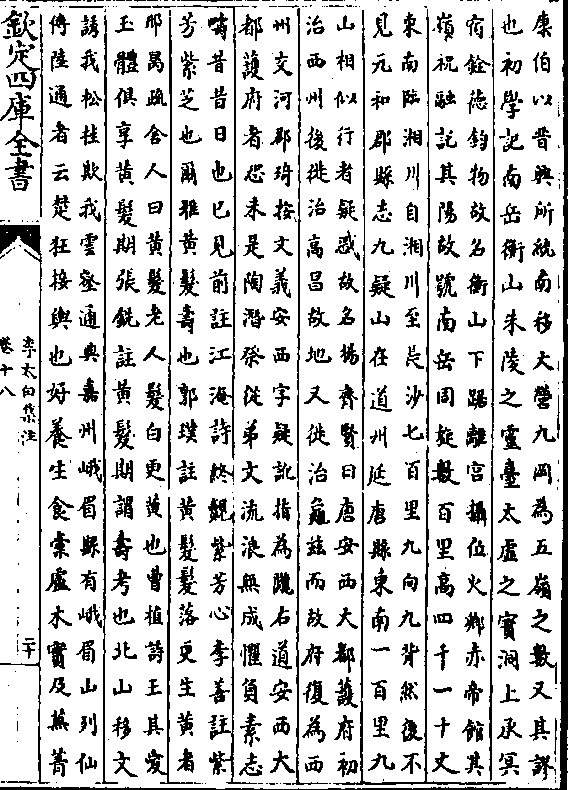 庾伯以晉興所統南移大營九岡為五嶺之數又其謬
也初學記南岳衡山朱陵之靈臺太虛之寳洞上承冥
宿銓徳鈞物故名衡山下踞離宮攝位火鄉赤帝館其
嶺祝融託其陽故號南岳周旋數百里高四千一十丈
東南臨湘川自湘川至長沙七百里九向九背然後不
見元和郡縣志九疑山在道州延唐縣東南一百里九
山相似行者疑惑故名楊齊賢曰唐安西大都護府初
治西州後徙治高昌故地又徙治龜兹而故府復為西
州交河郡琦按文義安西字疑訛指為隴右道安西大
都護府者恐未是陶潛祭從弟文流浪無成懼負素志
疇昔昔日也已見前註江淹詩終覿紫芳心李善註紫
芳紫芝也爾雅黄髮壽也郭璞註黄髮髮落更生黄者
邢昺疏舍人曰黄髮老人髮白更黄也曹植詩王其愛
玉體俱享黄髮期張銑註黄髮期謂壽考也北山移文
誘我松桂欺我雲壑通典嘉州峨眉縣有峨眉山列仙
傳陸通者云楚狂接輿也好養生食槖盧木實及蕪菁
欽定四庫全書
李太白集注
卷十八
二十